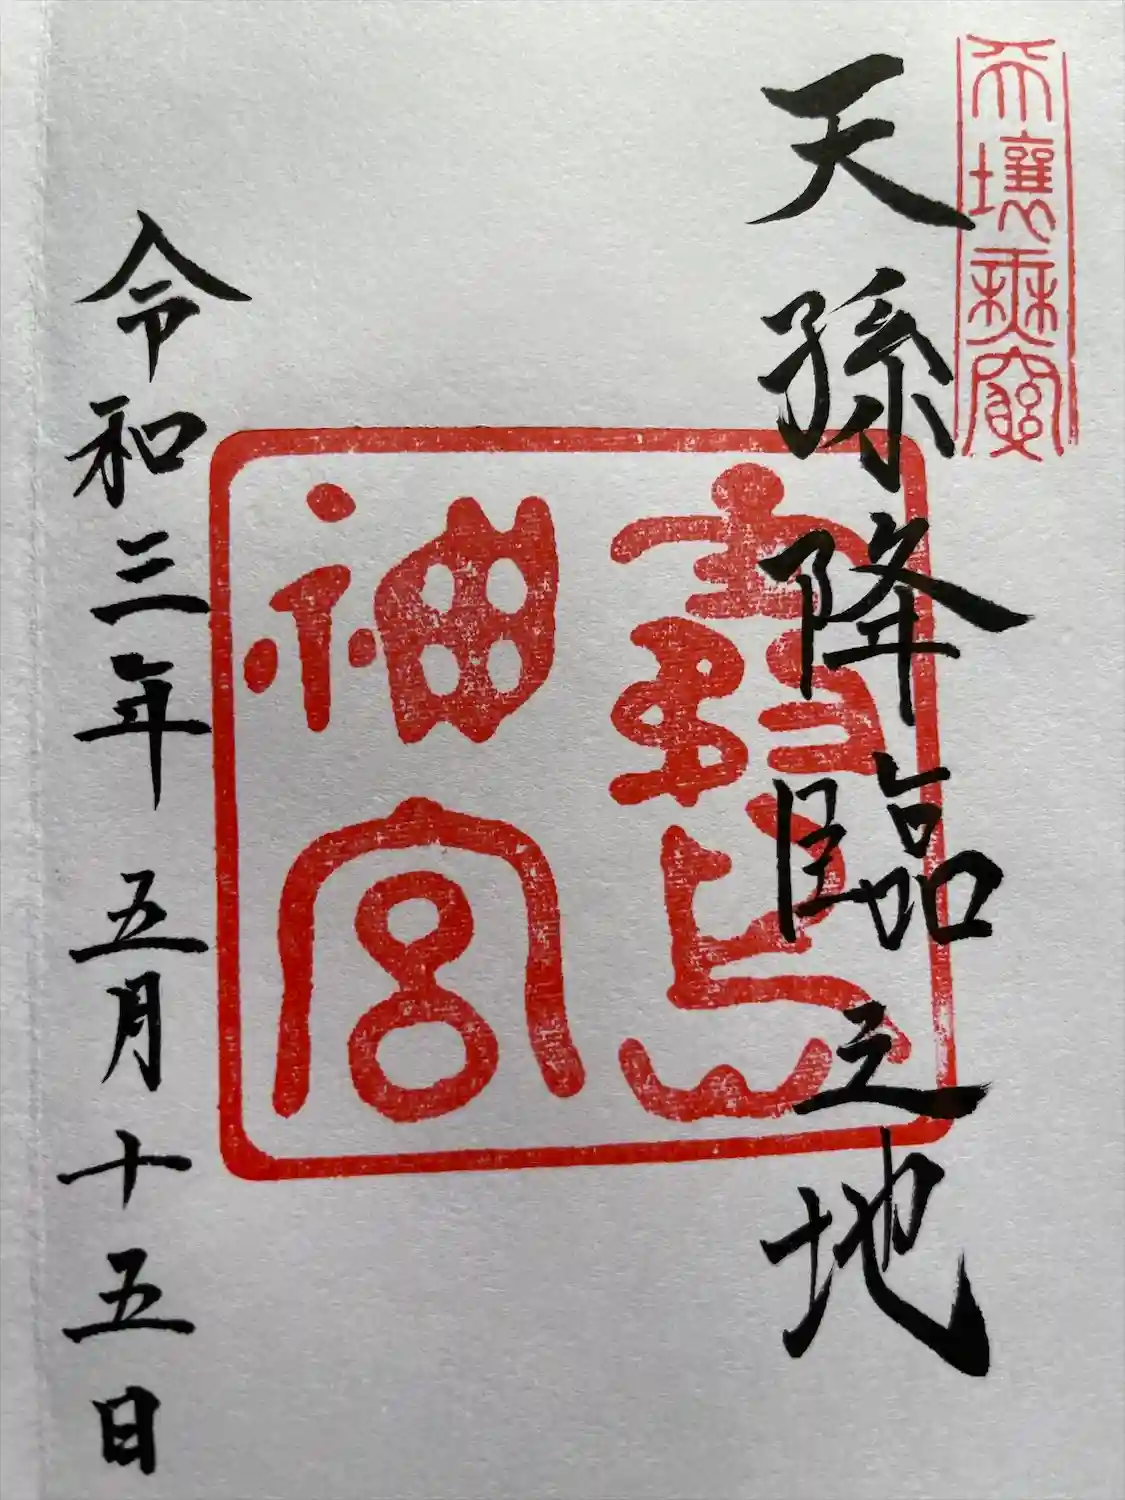 天壤無窮
天孫降臨之地
霧島神宮
令和三年 五月十五日